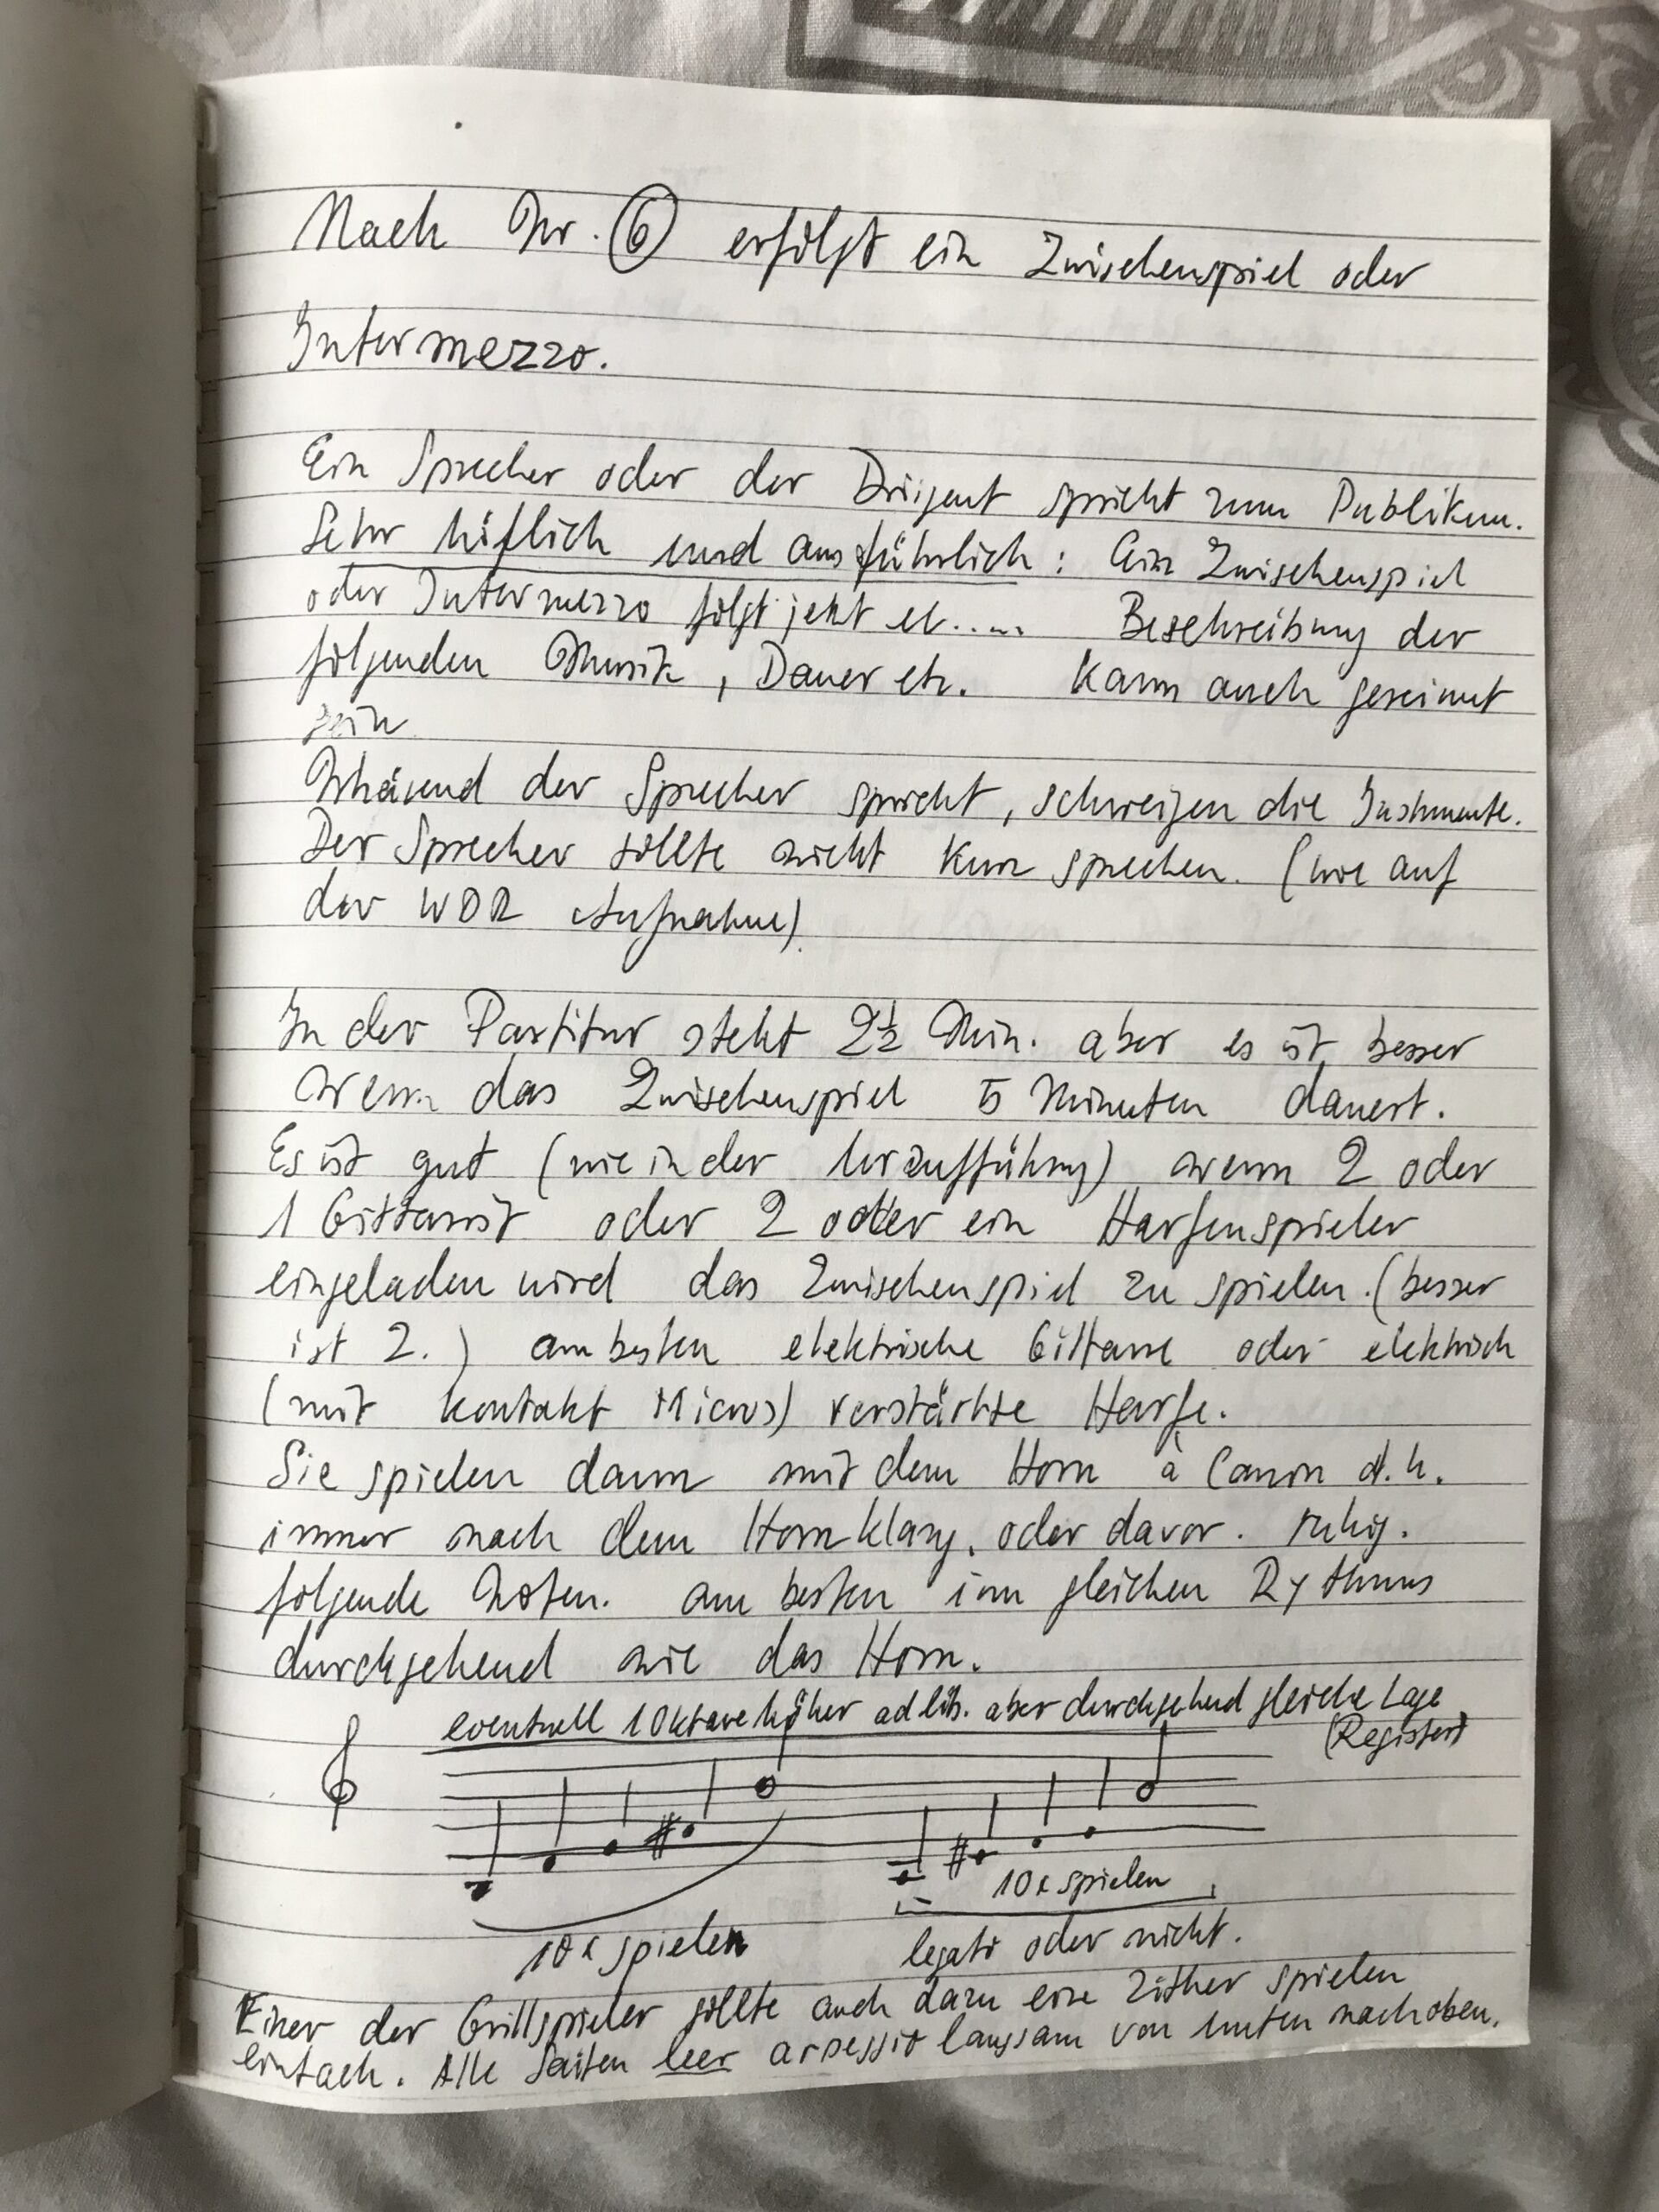 Nach Nr. 6 erfolgt ein Zwischenspiel oder
Intermezzo.
Ein Sprecher oder der Dirigent spricht zum Publikum.
Sehr höflich und ausführlich: Ein Zwischenspiel
oder Intermezzo folgt jetzt et..... Beschreibung der
folgenden Musik, Dauer etc. Kann auch gereimt
sein
Whärend der Sprecher spricht, schweigen die Instrumente.
Der Sprecher sollte nicht kurz sprechen. (wie auf
der WDR Aufnahme)
In der Partitur steht 2½ Min. aber es ist besser
wenn das Zwischenspiel 5 Minuten dauert.
Es ist gut (wie in der Uraufführung) wenn 2 oder
1 Gittarist oder 2 oder ein Harfenspieler
eingeladen wird das Zwischenspiel zu spielen. (besser
ist 2.) am besten elektrische Gittarre oder elektrisch
(mit Kontakt Micros) verstärkte Harfe.
Sie spielen dann mit dem Horn à Canon d.h.
immer nach dem Hornklang. oder davor. ruhig.
folgende Noten. am besten im gleichen Rythmus
durchgehend wie das Horn.
eventuell 1 Oktave höher ad lib. aber durchgehend gleiche Lage
(Register)
10x spielen
10x spielen
legato oder nicht.
Einer der Grillspieler sollte auch dazu eine Zither spielen
einfach. Alle Saiten leer arpeggio langsam von unten nach oben.